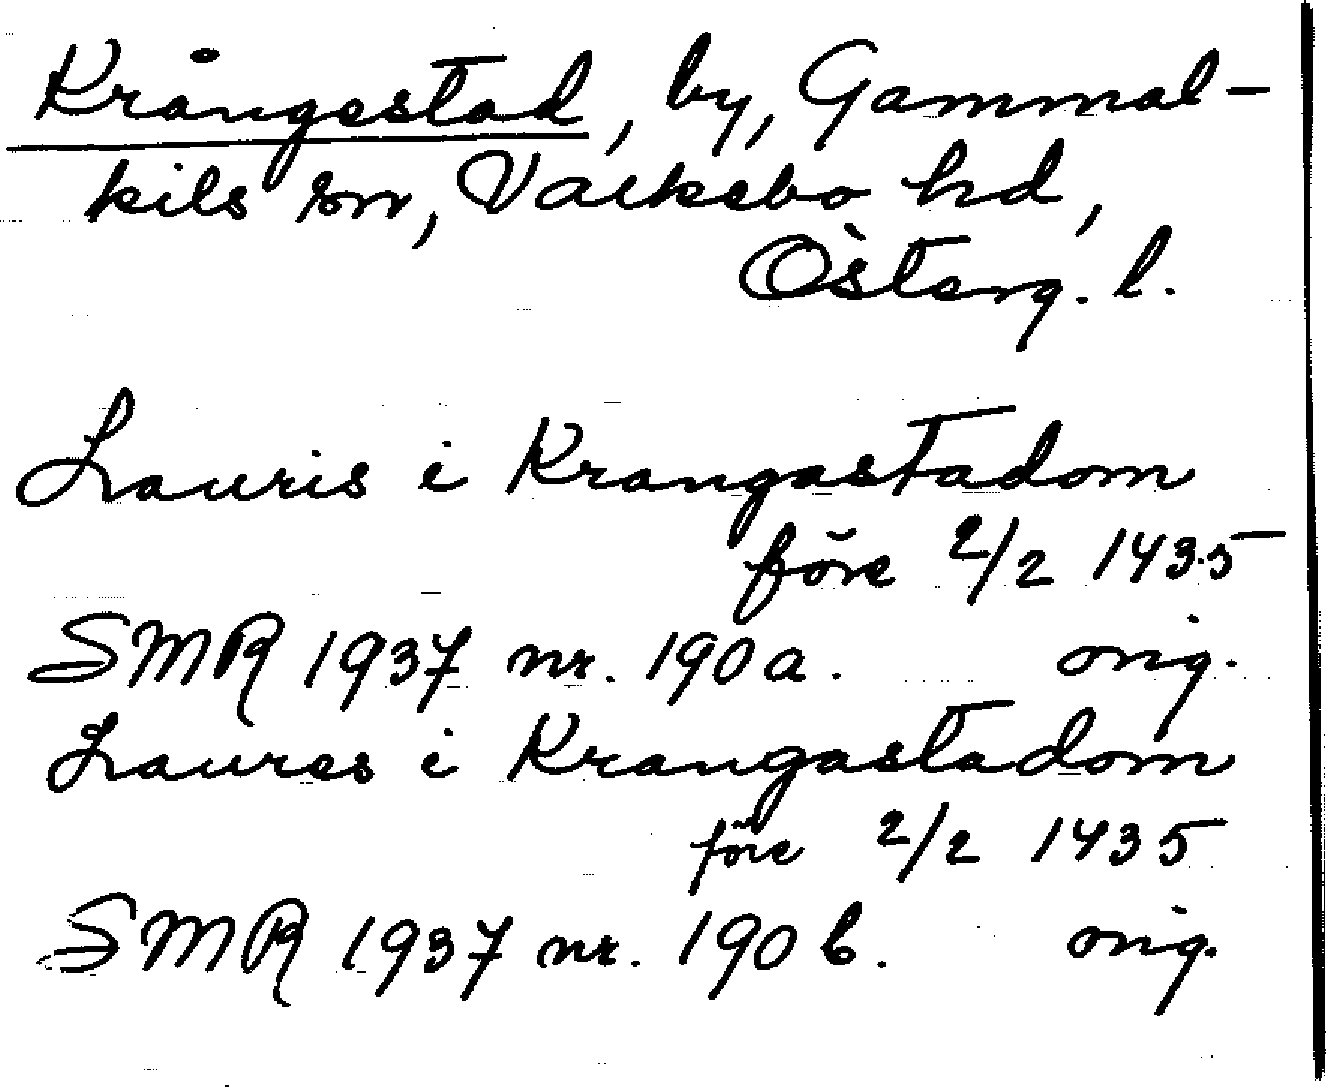 Krångestad, by, Gammal-
kils sn, Valkebo hd,
Österg. l.
Lauris i Krangastadom
före 2/2 1435
SMR 1937 nr. 190 a. orig.
Laures i Krangastadom
före 2/2 1435
SMR 1937 nr. 190 b. orig.